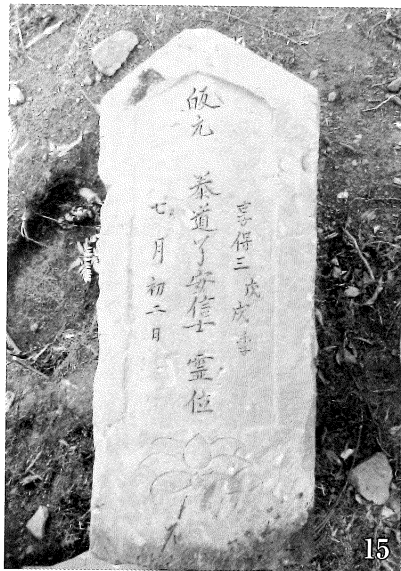 享保三戊戌季
皈元 恭道了安信士 霊位
七月初二日
15